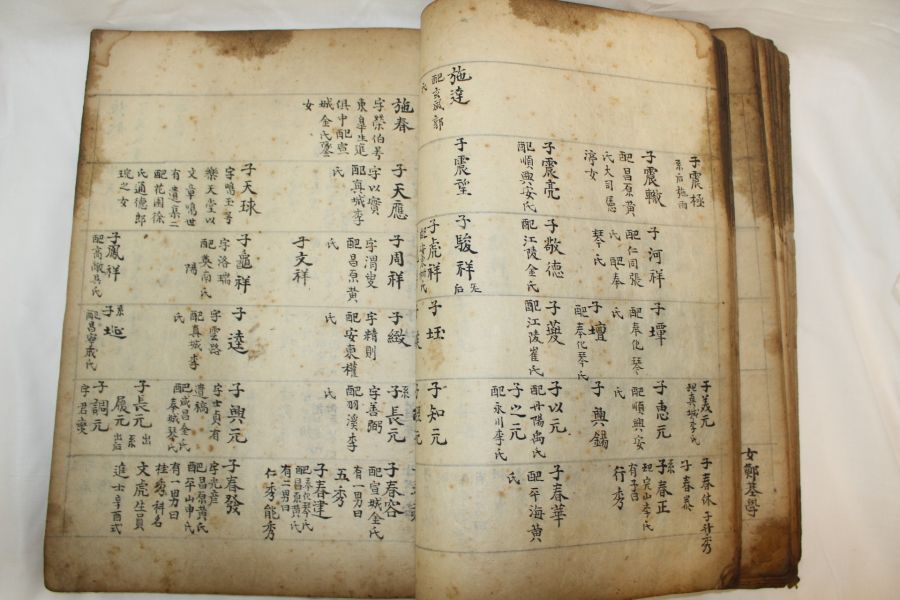 女鄭基學
施達
配玄風郭
氏
子震極
系后施雨
子震轍
配昌原黃
氏大司憲
女
子震亮
配順興安氏
子震望
子河祥
配仁同張
氏配奉
琴氏
子敬德
配江陵金氏
子駿祥
无后
子虎祥
配奉化琴
氏
子壇
配奉化琴氏
配江陵崔氏
子美元
配真城李氏
子惠元
配順興安
氏
子興錫
子以元
配丹陽禹氏
子之元
配永川李氏
子知元
子春休 子行秀
子春泰
系
子春正
配完山李氏
有子曰
行秀
子春華
配平海黃
氏
施春
字榮伯号
東皐生進
俱中配宣
城金氏
女
子天應
字以實
配真城李
氏
子天球
字鳴玉号
樂天堂以
文章鳴世
有遺集二
配花園徐
氏通德郎
琬之女
子周祥
字渭叟
配昌原黃
氏
子文祥
子龜祥
字洛瑞
配英南氏
陽
子鳳祥
配高敞吳氏
子緻
字精則
配安東權
氏
子逵
字雲路
配真城李
氏
系
配昌寧成氏
系
子長元
字善弼
配羽溪李
氏
子興元
字士貞有
遺稿
配咸昌金氏
配奉城琴氏
子長元 出系
子履元 出后
子調元
字君燮
子春容
配宣城金氏
有一男曰
五秀
子春達
配奉化琴氏
配昌原黃氏
有二男曰
仁秀能秀
子春發
字光彦
配昌原黃氏
配平山申氏
有一男曰
桂秀科名
文虎生員
進士辛酉式